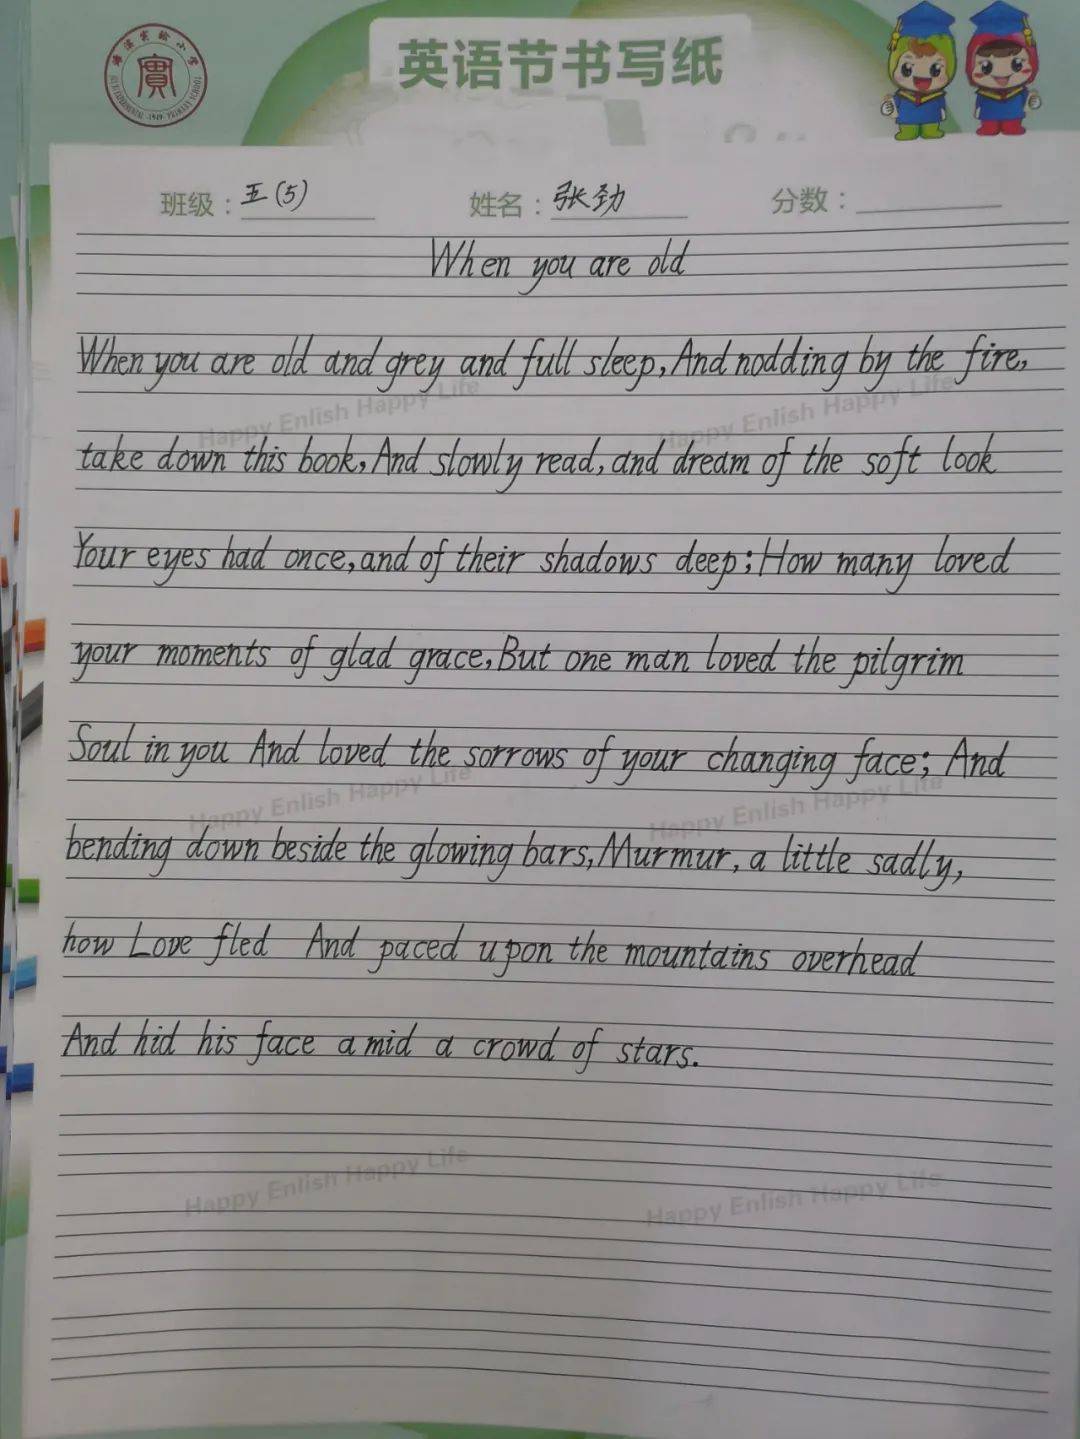 英语节书写纸
班级：五(5) 姓名：张劲 分数：
When you are old
When you are old and grey and full sleep, And nodding by the fire,
take down this book, And slowly read, and dream of the soft look
Your eyes had once, and of their shadows deep; How many loved
your moments of glad grace, But one man loved the pilgrim
Soul in you And loved the sorrows of your changing face; And
bending down beside the glowing bars, Murmur, a little sadly,
how Love fled And paced upon the mountains overhead
And hid his face amid a crowd of stars.
Happy Enlish Happy Life
Happy Enlish Happy Life
Happy Enlish Happy Life
Happy Enlish Happy Life
Happy Enlish Happy Life
Happy Enlish Happy Life